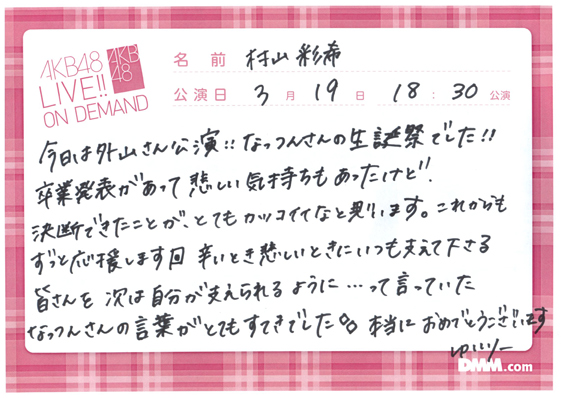 AKB48
LIVE!!
ON DEMAND
AKB
48
名前 村山彩希
公演日 3月19日 18:30公演
今日は外山さん公演!! なっつんさんの生誕祭でした!!
卒業発表があって悲しい気持ちもあったけど、
決断できたことが、とてもカッコイイなと思います。これからも
ずっと応援します 辛いとき悲しいときにいつも支えて下さる
皆さんを次は自分が支えられるように…って言っていた
なっつんさんの言葉がとてもすてきでした 本当におめでとうございます
ゆいりー
DMM.com